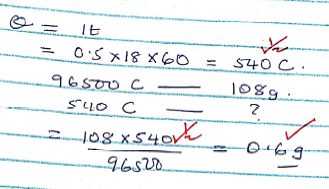 Q = It
= 0.5 x 18 x 60 = 540 C.
96500 C — 108g.
540 C — ?
= 108 x 540 / 96500 = 0.6g